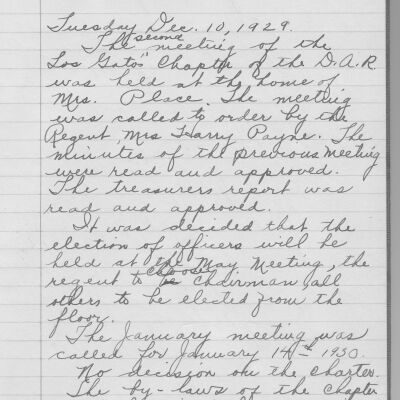 Tuesday Dec. 10, 1929.
The second meeting of the
Los Gatos' Chapter of the D.A.R.
was held at the home of
Mrs. Place. The meeting
was called to order by the
Regent, Mrs Harry Payne. The
minutes of the previous meeting
were read and approved.
The treasurers report was
read and approved.
It was decided that the
election of officers will be
held at the May Meeting, the
regent to choose chairman, all
others to be elected from the
floor.
The January meeting was
called for January 14th 1930.
No decision on the charter.
The by-laws of the chapter